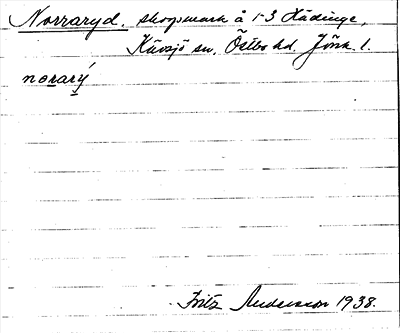 Norraryd, skogsmark å 1-3 Hädinge,
Kävsjö sn. Östbo hd. Jönk. l.
norarý
Fritz Andersson 1938.